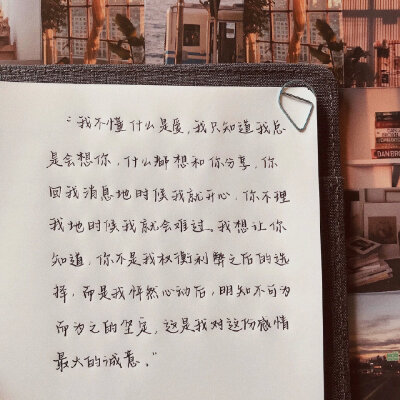 “我不懂什么是爱,我只知道我总
是会想你,什么都想和你分享,你
回我消息地时候我就开心,你不理
我地时候我就会难过。我想让你
知道,你不是我权衡利弊之后的选
择,而是我怦然心动后,明知不可为
而为之的坚定,这是我对这份感情
最大的诚意。”
DAN BROWN